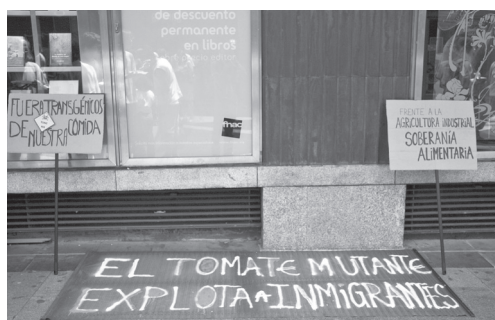 de descuento
permanente
en libros
fnac
FUERA TRANSGÉNICOS
DE NUESTRA COMIDA
FRENTE A LA
AGRICULTURA INDUSTRIAL
SOBERANÍA
ALIMENTARIA
EL TOMATE MUTANTE
EXPLOTA A INMIGRANTES